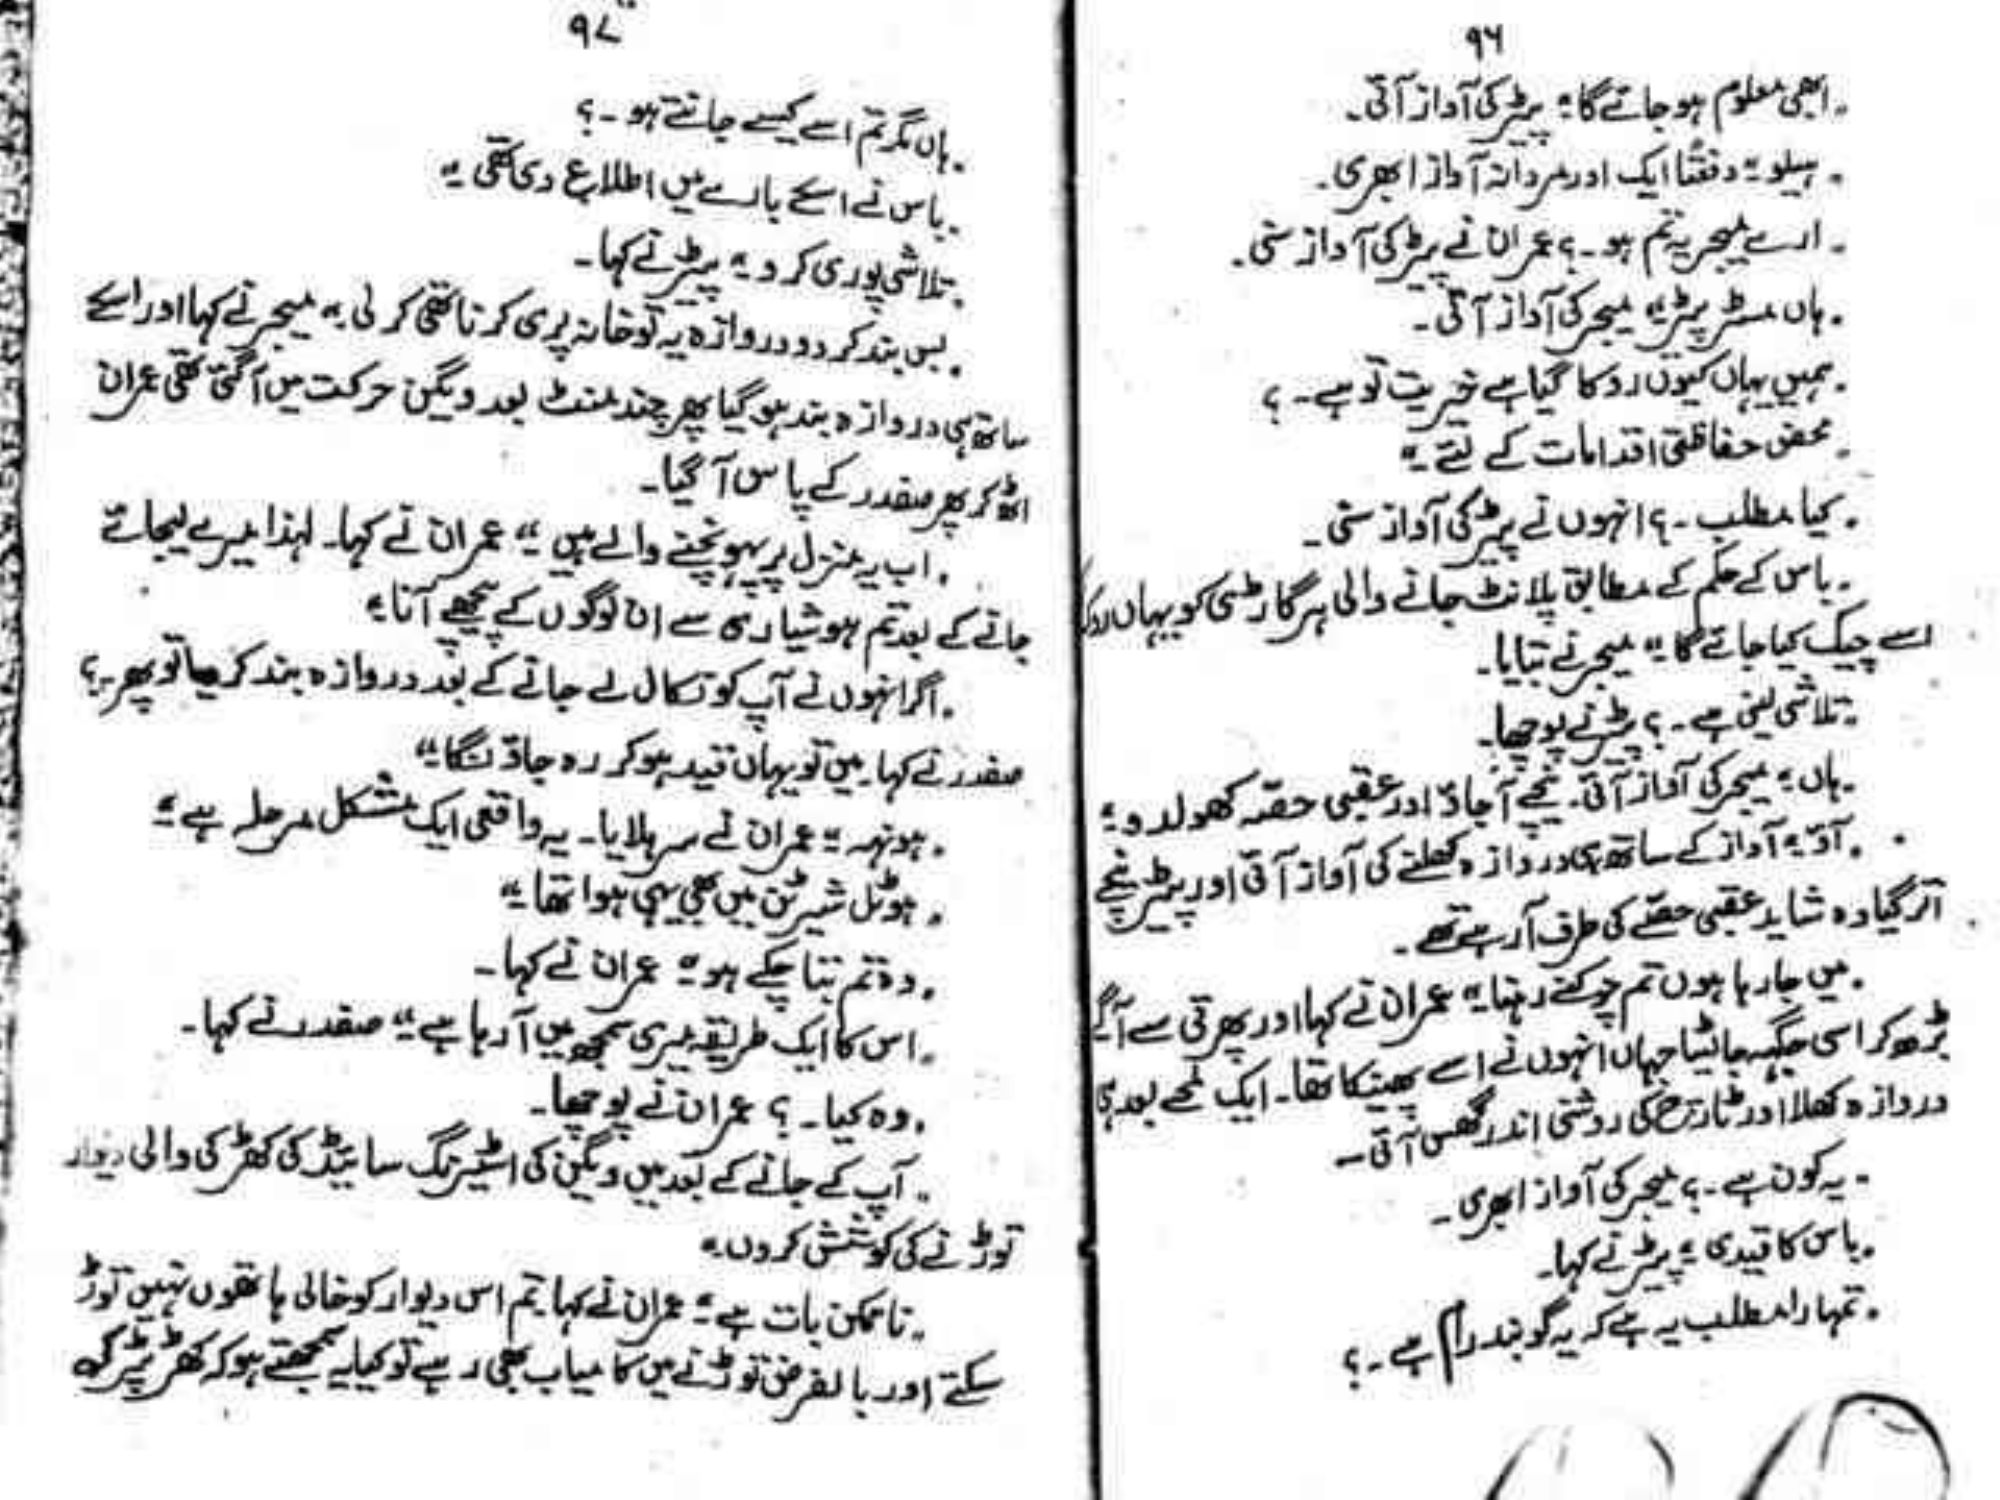 ۹۶
۔ ابھی معلوم ہو جائے گا ؛ پیٹر کی آواز آئی۔
۔ ہیلو ؛ دفعتًا ایک اور مردانہ آواز ابھری۔
۔ ارے میجر یہ تم ہو ۔ ؟ عمران نے پیٹر کی آواز سنی ۔
۔ ہاں مسٹر پیٹر ؛ میجر کی آواز آئی ۔
۔ ہمیں یہاں کیوں روکا گیا ہے خیریت تو ہے ۔ ؟
۔ محض حفاظتی اقدامات کے لئے ؛
۔ کیا مطلب ۔ ؟ انہوں نے پیٹر کی آواز سنی ۔
۔ باس کے حکم کے مطابق پلانٹ جانے والی ہر گاڑی کو یہاں روک
اسے چیک کیا جائے گا ؛ میجر نے بتایا۔
۔ تلاشی لینی ہے ۔ ؟ پیٹر نے پوچھا۔
۔ ہاں ؛ میجر کی آواز آئی۔ نیچے آ جاؤ اور عقبی حصّہ کھول دو ؛
۔ آؤ ؛ آواز کے ساتھ ہی دروازہ کھلنے کی آواز آئی اور پیٹر نیچے
اتر گیا وہ شاید عقبی حصّے کی طرف آ رہے تھے ۔
۔ میں جا رہا ہوں تم چوکنے رہنا ؛ عمران نے کہا اور پھرتی سے آگے
بڑھ کر اسی جگہ جا لیٹا جہاں انہوں نے اسے پھینکا تھا ۔ ایک لمحے بعد ہی
دروازہ کھلا اور ٹارچ کی روشنی اندر گھس آئی ۔
۔ یہ کون ہے ۔ ؟ میجر کی آواز ابھری ۔
۔ باس کا قیدی ؛ پیٹر نے کہا۔
۔ تمہارا مطلب یہ ہے کہ یہ گوبند رام ہے ۔ ؟
۹۷
۔ ہاں مگر تم اسے کیسے جانتے ہو ۔ ؟
۔ باس نے اسکے بارے میں اطلاع دی تھی ؛
۔ تلاشی پوری کر دو ؛ پیٹر نے کہا ۔
۔ بس بند کر دو دروازہ یہ تو خانہ پری کرنا تھی کر لی ؛ میجر نے کہا اور اسکے
ساتھ ہی دروازہ بند ہو گیا پھر چند منٹ بعد ویگن حرکت میں آ گئی تھی عمران
اٹھ کر پھر صفدر کے پاس آ گیا ۔
۔ اب یہ منزل پر پہونچنے والے ہیں ؛ عمران نے کہا ۔ لہٰذا میرے لیجائے
جانے کے بعد تم ہوشیاری سے ان لوگوں کے پیچھے آنا ؛
۔ اگر انہوں نے آپ کو نکال لے جانے کے بعد دروازہ بند کر دیا تو پھر ۔ ؟
صفدر نے کہا۔ میں تو یہاں قید ہو کر رہ جاؤنگا ؛
۔ ہونہہ ؛ عمران نے سر ہلایا ۔ یہ واقعی ایک مشکل مرحلہ ہے ؛
۔ ہوٹل شیرٹن میں بھی یہی ہوا تھا ؛
۔ وہ تم بتا چکے ہو ؛ عمران نے کہا ۔
۔ اس کا ایک طریقہ میری سمجھ میں آ رہا ہے ؛ صفدر نے کہا ۔
۔ وہ کیا ۔ ؟ عمران نے پوچھا ۔
۔ آپ کے جانے کے بعد میں ویگن کی اسٹیرنگ سائیڈ کی کھڑکی والی دیوار
توڑنے کی کوشش کروں ؛
۔ نا ممکن بات ہے ؛ عمران نے کہا تم اس دیوار کو خالی ہاتھوں نہیں توڑ
سکتے اور بالفرض توڑنے میں کامیاب بھی رہے تو کیا یہ سمجھتے ہو کہ کھڑ پڑ کی